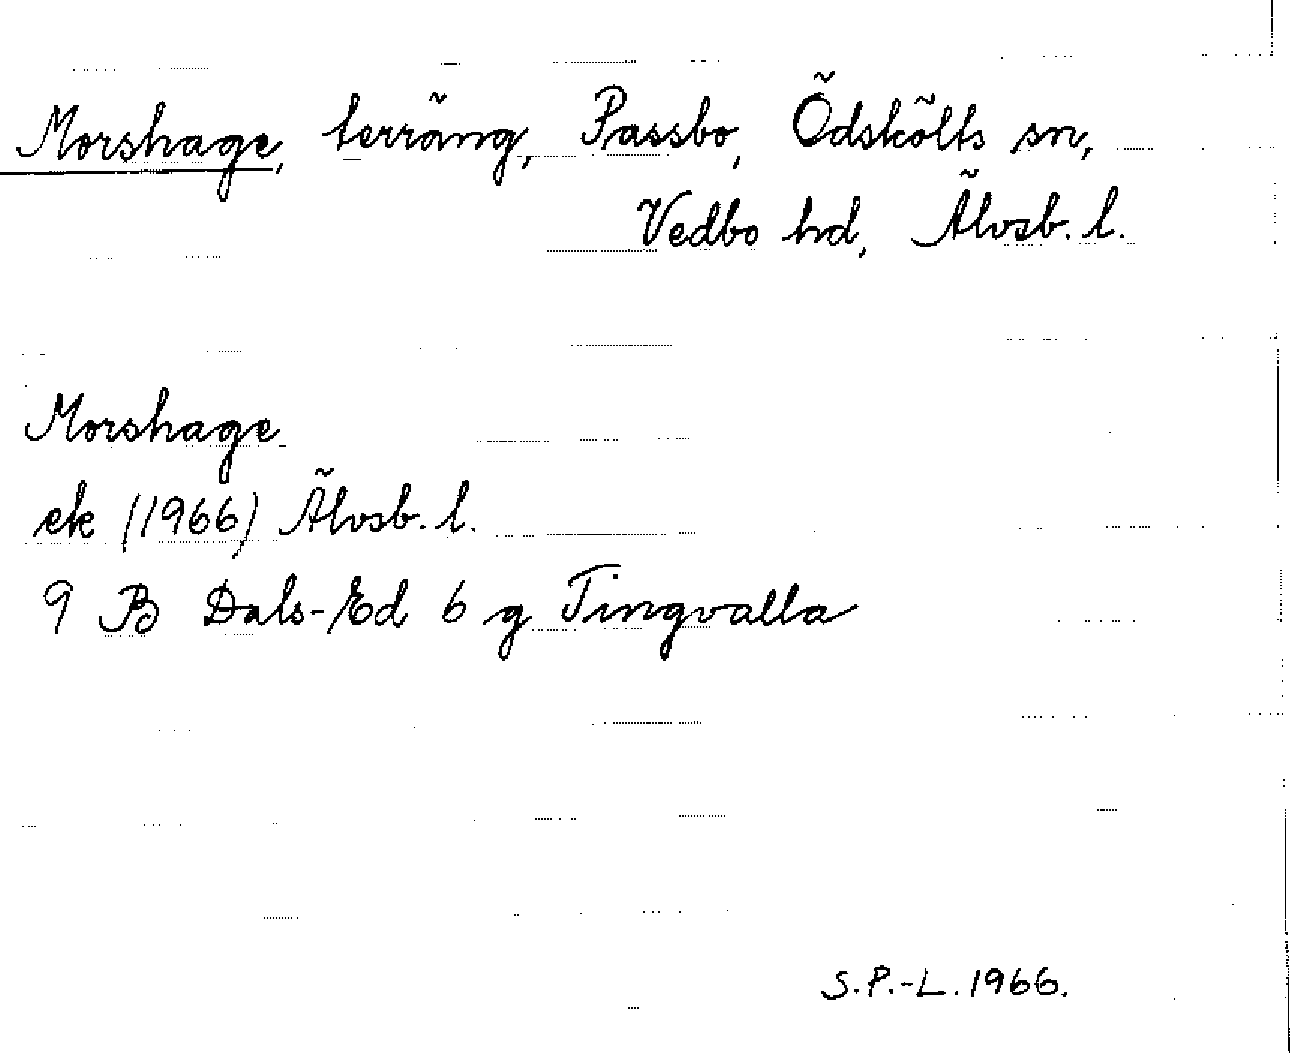 Morshage, terräng, Passbo, Ödskölts sn,
Vedbo hd, Älvsb. l.
Morshage
ek (1966) Älvsb. l.
9 B Dals-Ed 6 g Tingvalla
S.P.-L. 1966.